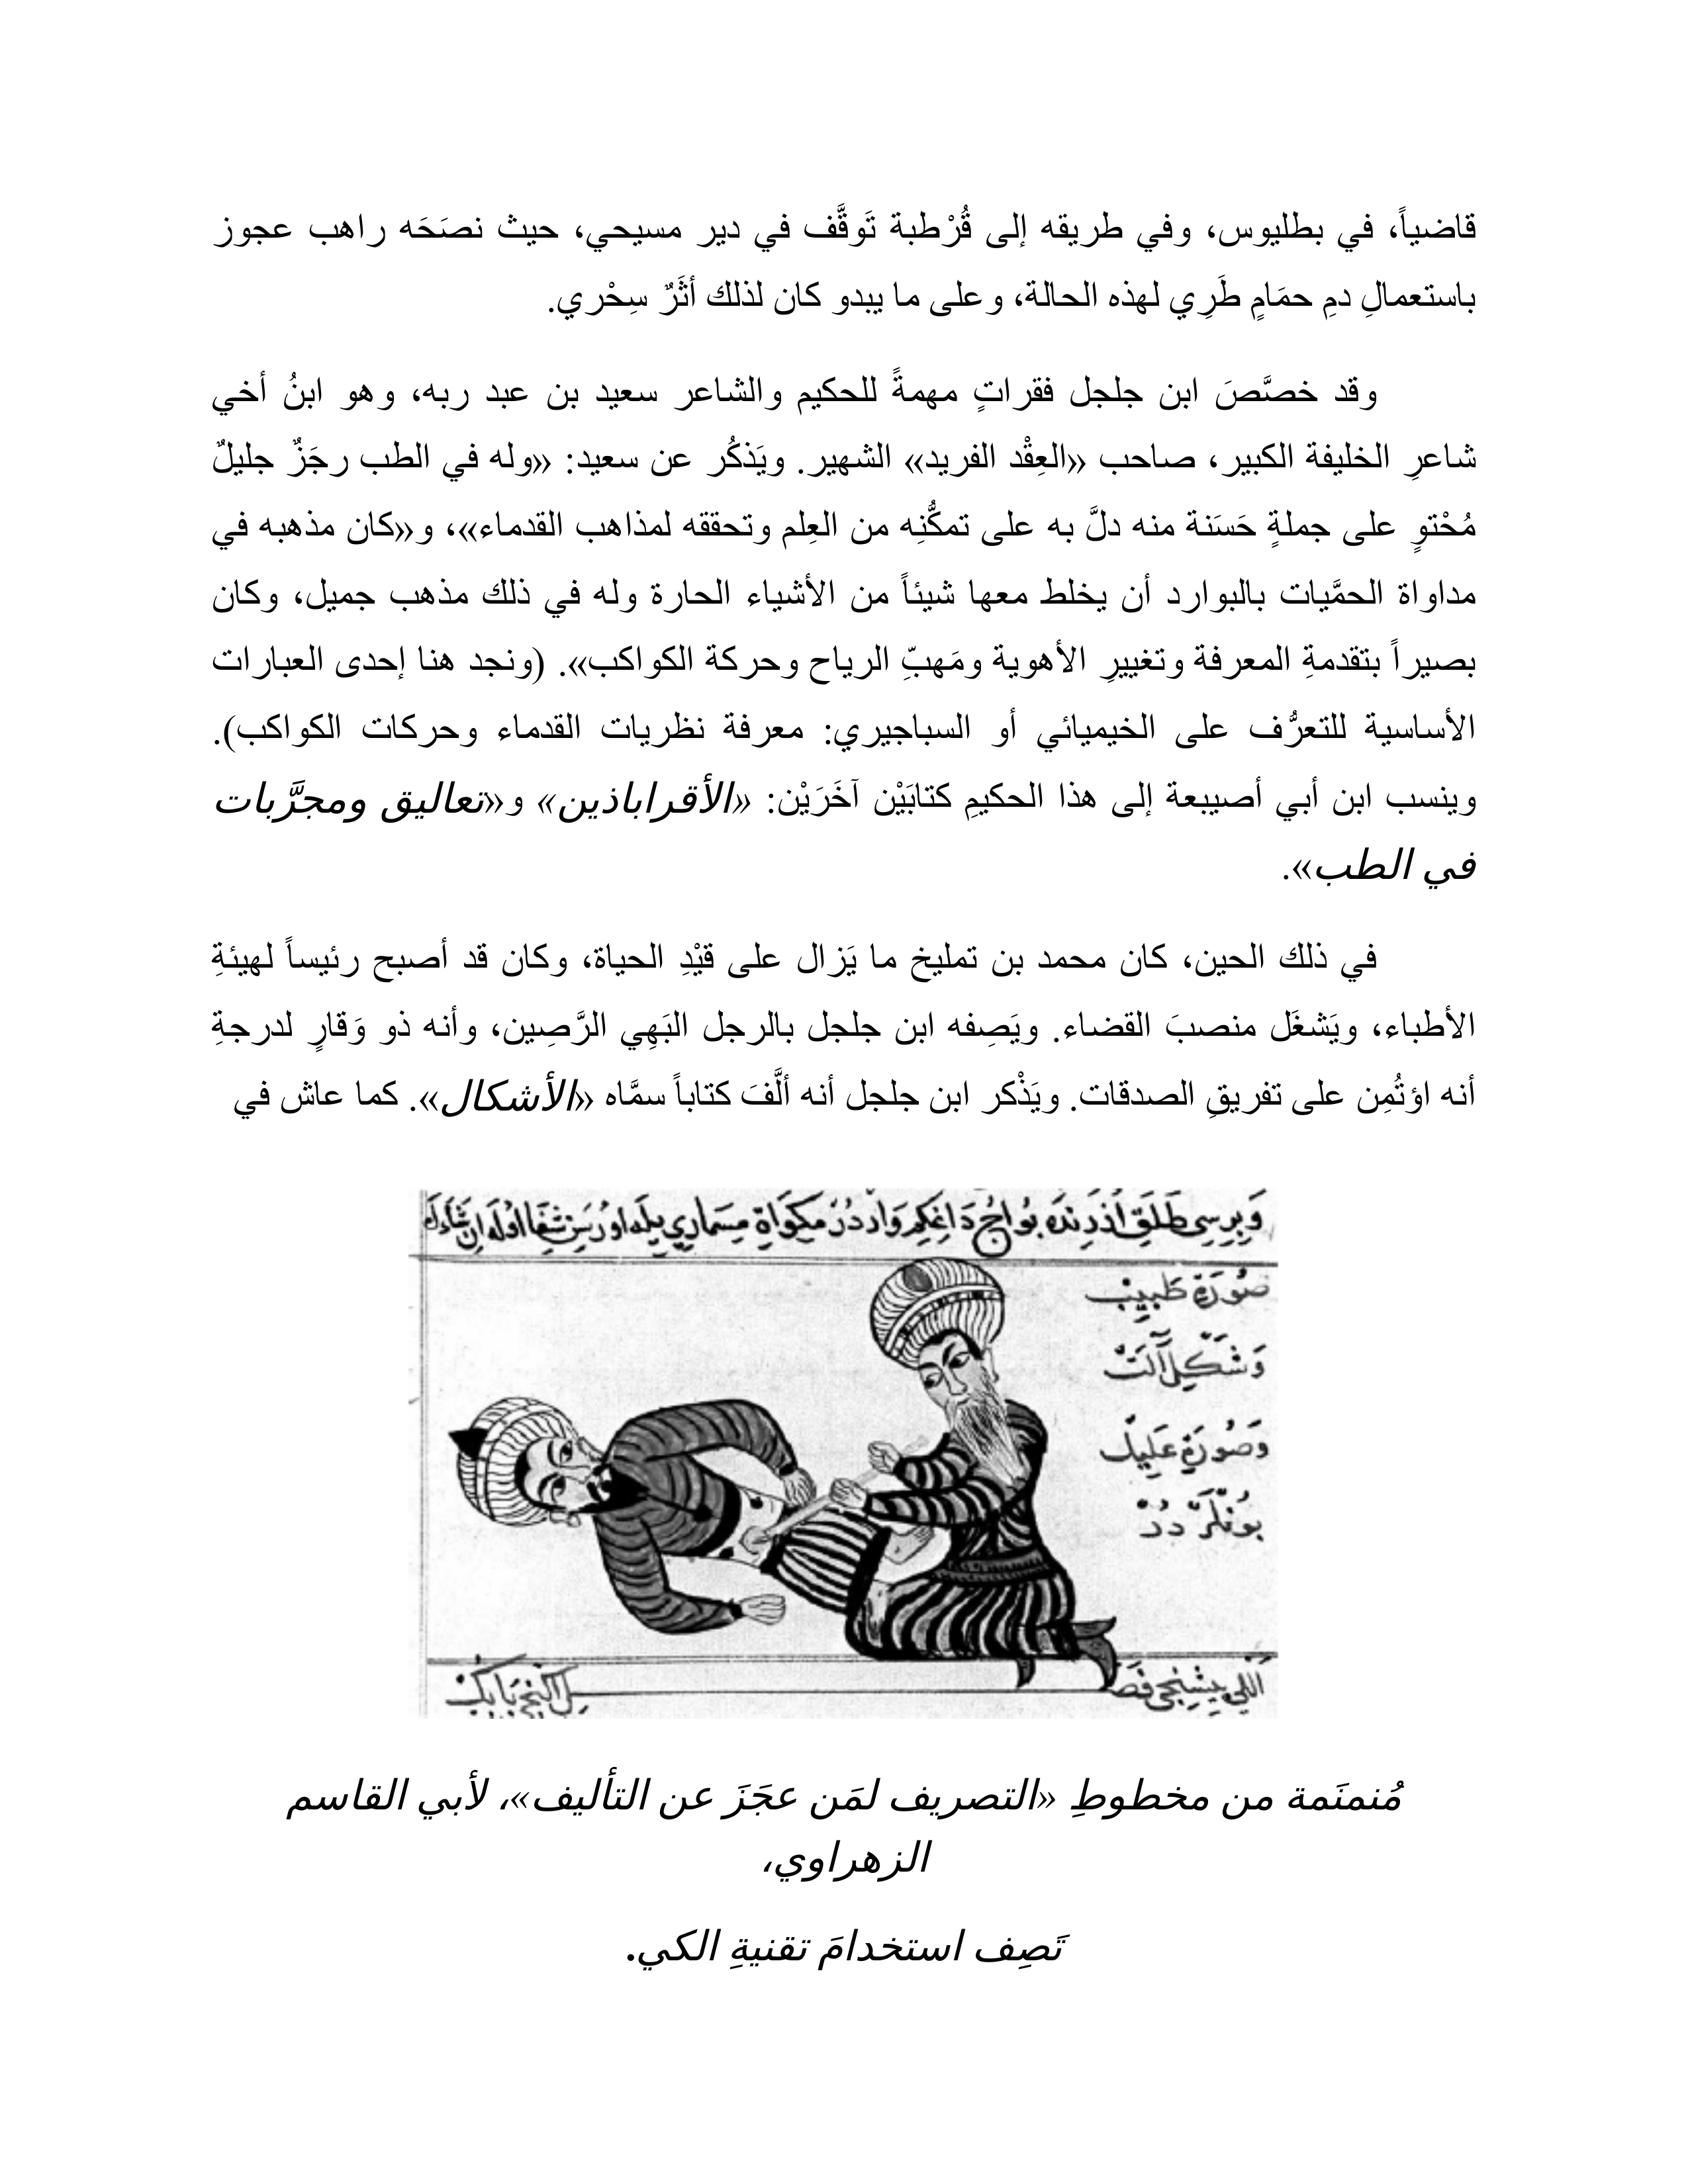 قاضياً، في بطليوس، وفي طريقه إلى قُرْطبة تَوقَّف في دير مسيحي، حيث نصَحَه راهب عجوز
باستعمالِ دمِ حمَامٍ طَرِي لهذه الحالة، وعلى ما يبدو كان لذلك أثَرٌ سِحْري.
وقد خصَّصَ ابن جلجل فقراتٍ مهمةً للحكيم والشاعر سعيد بن عبد ربه، وهو ابنُ أخي
شاعرِ الخليفة الكبير، صاحب «العِقْد الفريد» الشهير. ويَذكُر عن سعيد: «وله في الطب رجَزٌ جليلٌ
مُحْتوٍ على جملةٍ حَسَنة منه دلَّ به على تمكُّنِه من العِلم وتحققه لمذاهب القدماء»، و«كان مذهبه في
مداواة الحمَّيات بالبوارد أن يخلط معها شيئاً من الأشياء الحارة وله في ذلك مذهب جميل، وكان
بصيراً بتقدمةِ المعرفة وتغييرِ الأهوية ومَهبِّ الرياح وحركة الكواكب». (ونجد هنا إحدى العبارات
الأساسية للتعرُّف على الخيميائي أو السباجيري: معرفة نظريات القدماء وحركات الكواكب).
وينسب ابن أبي أصيبعة إلى هذا الحكيمِ كتابَيْن آخَرَيْن: «الأقراباذين» و«تعاليق ومجرَّبات
في الطب».
في ذلك الحين، كان محمد بن تمليخ ما يَزال على قيْدِ الحياة، وكان قد أصبح رئيساً لهيئةِ
الأطباء، ويَشغَل منصبَ القضاء. ويَصِفه ابن جلجل بالرجل البَهِي الرَّصِين، وأنه ذو وَقارٍ لدرجةِ
أنه اؤتُمِن على تفريقِ الصدقات. ويَذْكر ابن جلجل أنه ألَّفَ كتاباً سمَّاه «الأشكال». كما عاش في
صُورَةِ طَبِيبْ
وَشَكْلِ آلَتْ
وَصُورَةِ عَلِيلْ
بُونْلَرْ دُرْ
مُنمنَمة من مخطوطِ «التصريف لمَن عجَزَ عن التأليف»، لأبي القاسم
الزهراوي،
تَصِف استخدامَ تقنيةِ الكي.